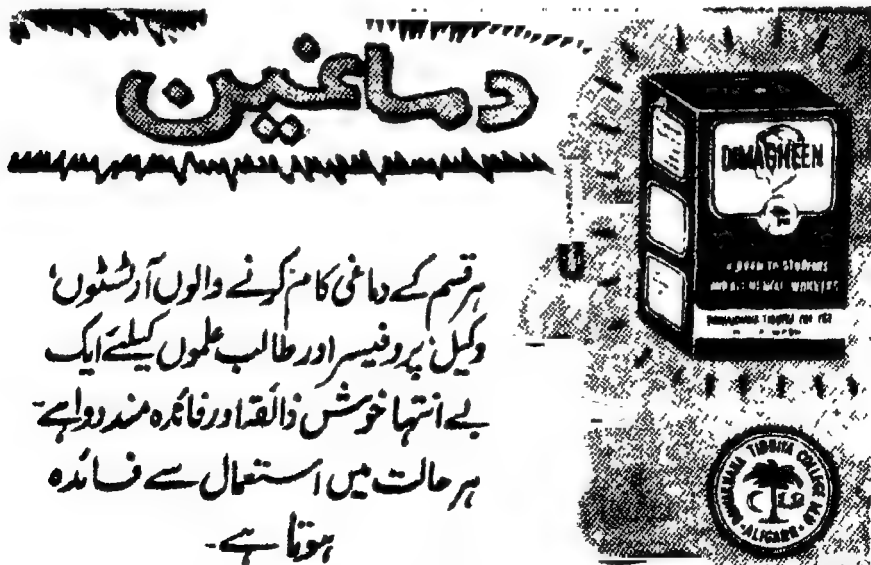 دماغین
ہر قسم کے دماغی کام کرنے والوں آرٹسٹوں،
وکیل، پروفیسر اور طالب علموں کیلئے ایک
بے انتہا خوش ذائقہ اور فائدہ مند دوا ہے۔
ہر حالت میں استعمال سے فائدہ
ہوتا ہے۔
DIMAGHEEN
STUDENTS
WORKERS
DAWAKHANA TIBBIYA COLLEGE M.U
ALIGARH